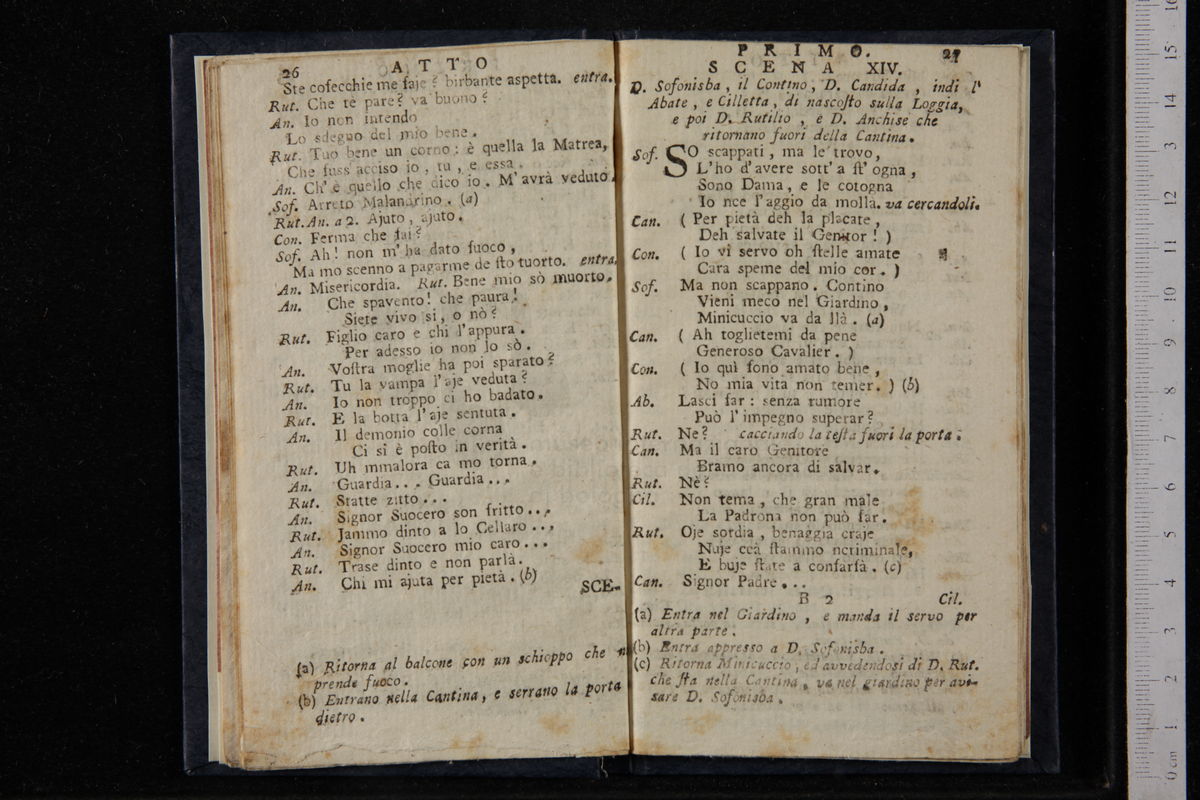 26 ATTO
Ste cosecchie me faje? birbante aspetta. entra.
Rut. Che te pare? va buono?
An. Io non intendo
Lo sdegno del mio bene.
Rut. Tuo bene un corno: è quella la Matrea,
Che fuss'acciso io, tu, e essa.
An. Ch'è quello che dico io. M'avrà veduto.
Sof. Arreto Malandrino. (a)
Rut. An. a 2. Ajuto, ajuto.
Con. Ferma che fai?
Sof. Ah! non m'ha dato fuoco,
Ma mo scenno a pagarme de sto tuorto. entra.
An. Misericordia. Rut. Bene mio sò muorto.
An. Che spavento! che paura!
Siete vivo si, o nò?
Rut. Figlio caro e chi l'appura.
Per adesso io non lo sò.
An. Vostra moglie ha poi sparato?
Rut. Tu la vampa l'aje veduta?
An. Io non troppo ci ho badato.
Rut. E la botta l'aje sentuta.
An. Il demonio colle corna
Ci si è posto in verità.
Rut. Uh mmalora ca mo torna.
An. Guardia... Guardia...
Rut. Statte zitto...
An. Signor Suocero son fritto...
Rut. Jammo dinto a lo Cellaro...
An. Signor Suocero mio caro...
Rut. Trase dinto e non parlà.
An. Chi mi ajuta per pietà. (b)
SCE-
(a) Ritorna al balcone con un schioppo che
prende fuoco.
(b) Entrano nella Cantina, e serrano la porta
dietro.
PRIMO. 27
SCENA XIV.
D. Sofonisba, il Contino, D. Candida, indi l'
Abate, e Cilletta, di nascosto sulla Loggia,
e poi D. Rutilio, e D. Anchise che
ritornano fuori della Cantina.
Sof. SO scappati, ma le trovo,
L'ho d'avere sott'a st'ogna,
Sono Dama, e le cotogna
Io nce l'aggio da molla. va cercandoli.
Can. (Per pietà deh la placate,
Deh salvate il Genitor!)
Con. (Io vi servo oh stelle amate
Cara speme del mio cor.)
Sof. Ma non scappano. Contino
Vieni meco nel Giardino,
Minicuccio va da llà. (a)
Can. (Ah toglietemi da pene
Generoso Cavalier.)
Con. (Io quì sono amato bene,
No mia vita non temer.) (b)
Ab. Lasci far: senza rumore
Può l'impegno superar?
Rut. Ne? cacciando la testa fuori la porta.
Can. Ma il caro Genitore
Bramo ancora di salvar.
Rut. Nè?
Cil. Non tema, che gran male
La Padrona non può far.
Rut. Oje sordia, benaggia craje
Nuje ccà stammo ncriminale,
E buje state a confarfà. (c)
Can. Signor Padre...
B 2 Cil.
(a) Entra nel Giardino, e manda il servo per
altra parte.
(b) Entra appresso a D. Sofonisba.
(c) Ritorna Minicuccio, ed avvedendosi di D. Rut.
che sta nella Cantina, va nel giardino per avi-
sare D. Sofonisba.